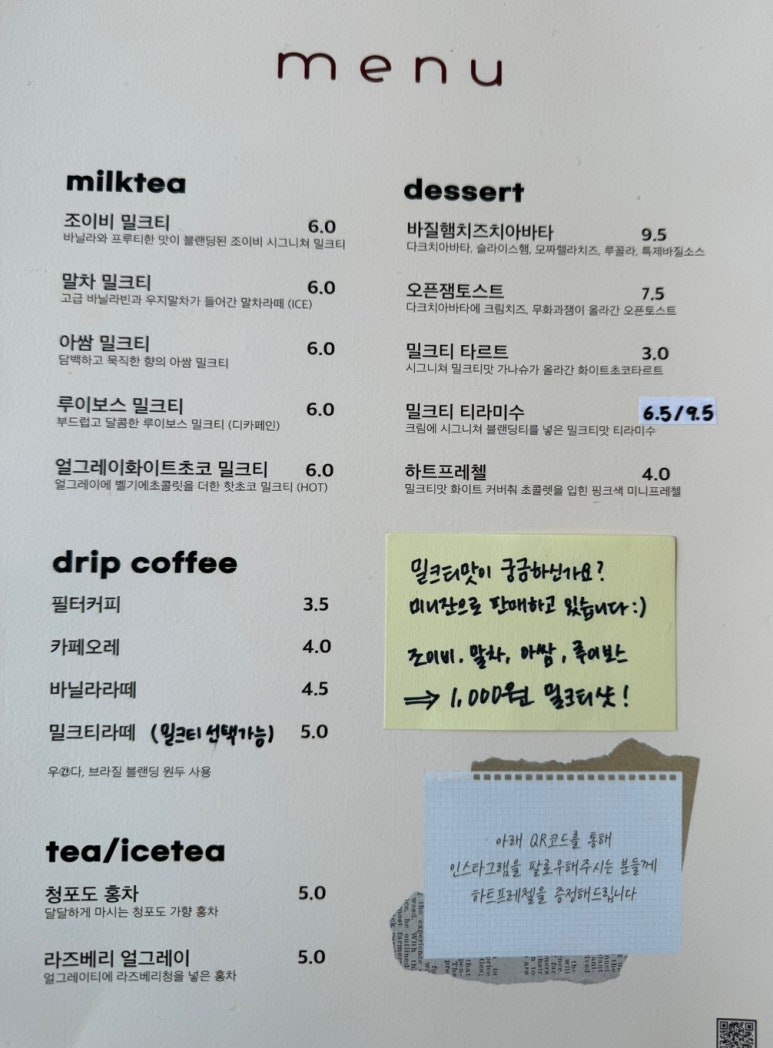 menu
milktea
조이비 밀크티 6.0
바닐라와 프루티한 맛이 블랜딩된 조이비 시그니쳐 밀크티
말차 밀크티 6.0
고급 바닐라빈과 우지말차가 들어간 말차라떼 (ICE)
아쌈 밀크티 6.0
담백하고 묵직한 향의 아쌈 밀크티
루이보스 밀크티 6.0
부드럽고 달콤한 루이보스 밀크티 (디카페인)
얼그레이화이트초코 밀크티 6.0
얼그레이에 벨기에초콜릿을 더한 핫초코 밀크티 (HOT)
drip coffee
필터커피 3.5
카페오레 4.0
바닐라라떼 4.5
밀크티라떼 (밀크티 선택가능) 5.0
브라질 블랜딩 원두 사용
tea/icetea
청포도 홍차 5.0
달달하게 마시는 청포도 가향 홍차
라즈베리 얼그레이 5.0
얼그레이티에 라즈베리청을 넣은 홍차
dessert
바질햄치즈치아바타 9.5
다크치아바타, 슬라이스햄, 모짜렐라치즈, 루꼴라, 특제바질소스
오픈잼토스트 7.5
다크치아바타에 크림치즈, 무화과잼이 올라간 오픈토스트
밀크티 타르트 3.0
시그니쳐 밀크티맛 가나슈가 올라간 화이트초코타르트
밀크티 티라미수 6.5/9.5
크림에 시그니쳐 블랜딩티를 넣은 밀크티맛 티라미수
하트프레첼 4.0
밀크티맛 화이트 커버춰 초콜렛을 입힌 핑크색 미니프레첼
밀크티맛이 궁금하신가요?
미니잔으로 판매하고 있습니다:)
조이비. 말차, 아쌈, 루이보스
⇒ 1,000원 밀크티샷!
아래 QR코드를 통해
인스타그램을 팔로우해주시는 분들께
하트프레첼을 증정해드립니다